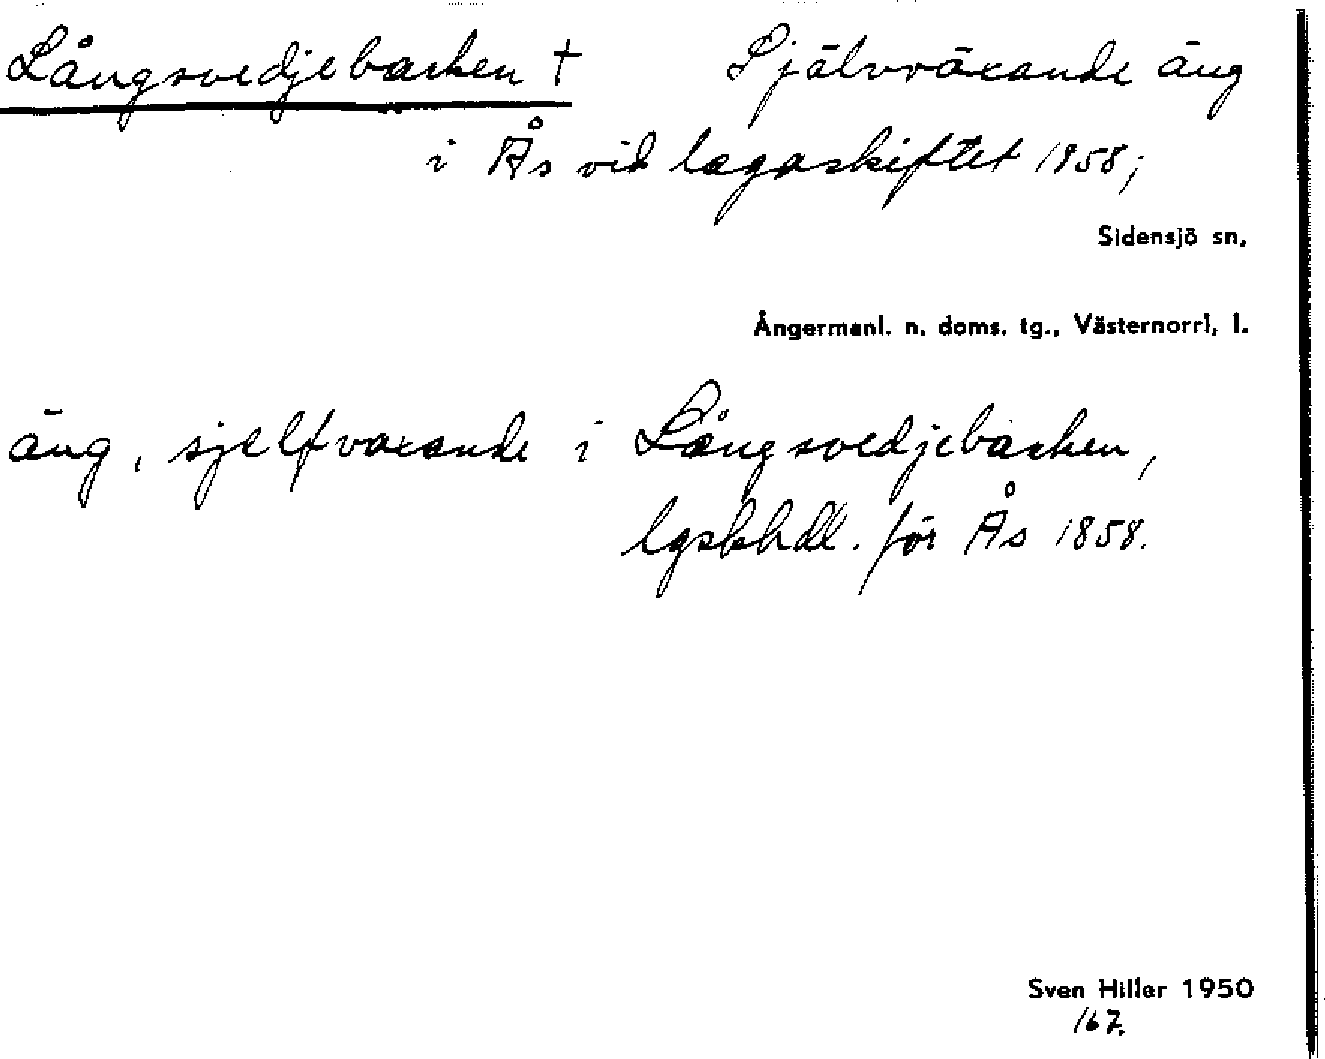 Långsvedjebacken † Självväxande äng
i Ås vid lagaskiftet 1958;
Sidensjö sn.
Ångermanl. n. doms. tg., Västernorrl. l.
äng, sjelfvaxande i Långsvedjebacken,
lgskhdl. för Ås 1858.
Sven Hiller 1950
167.